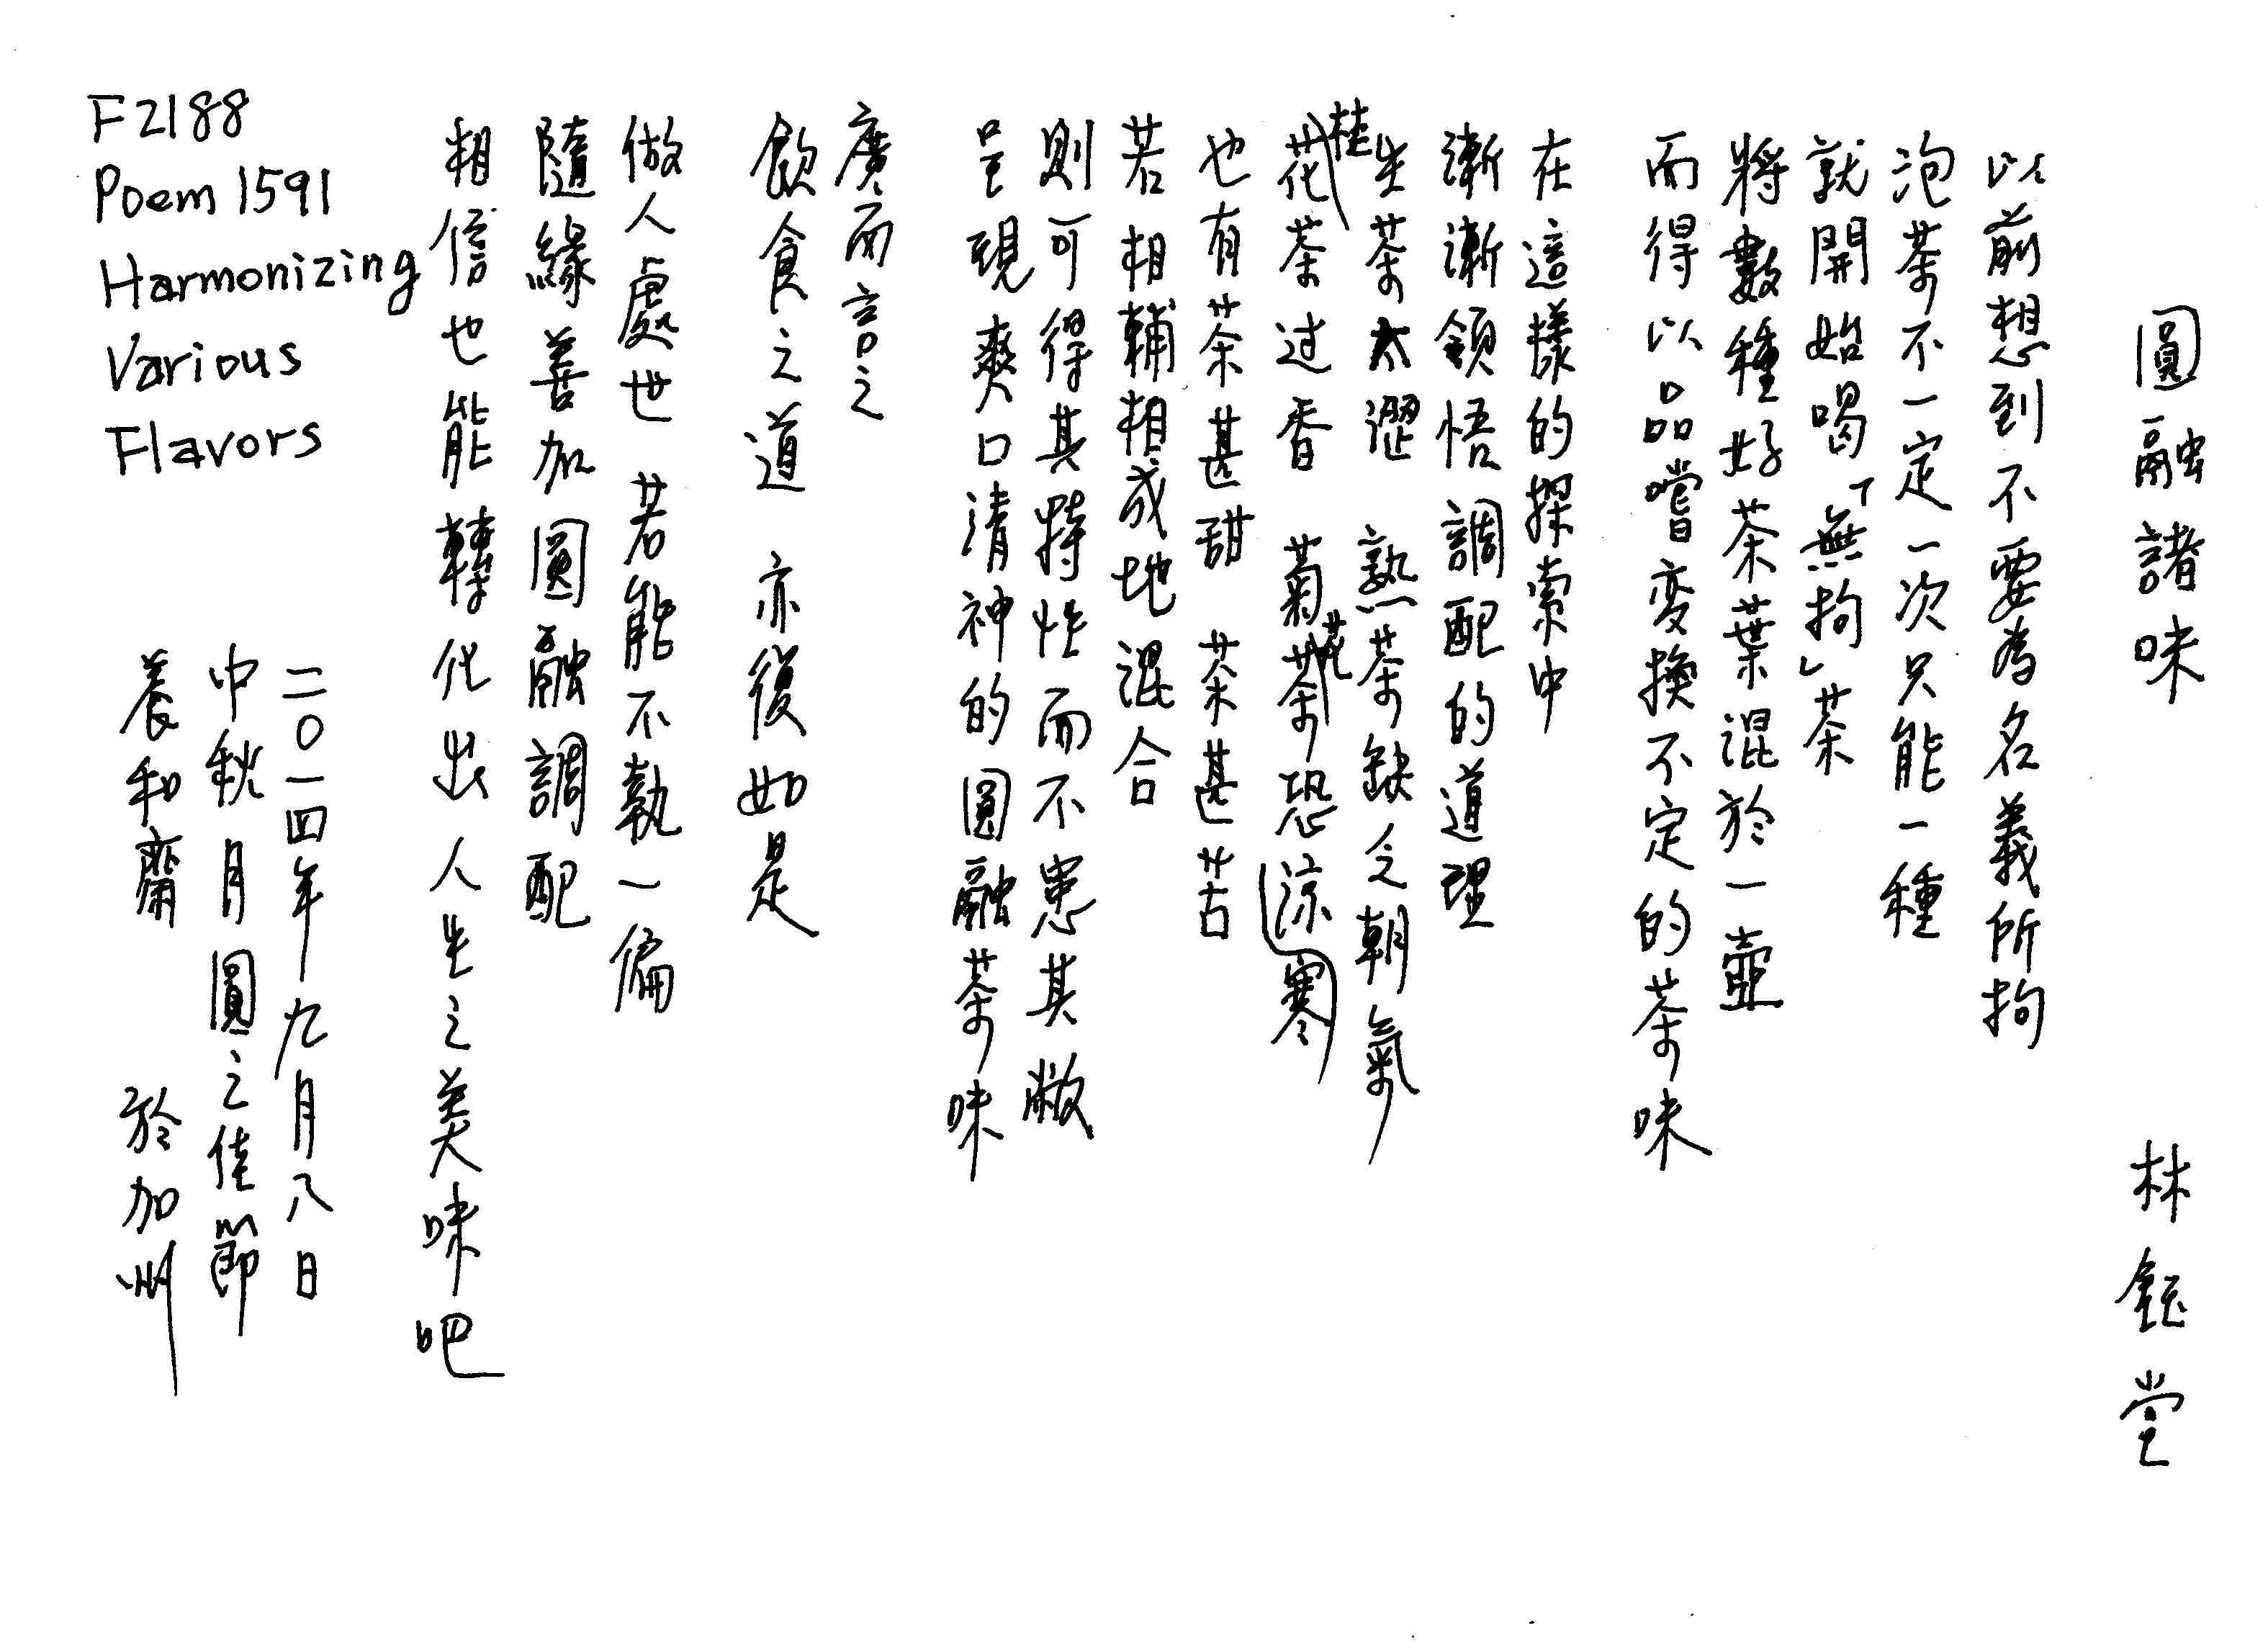 圓融諸味 林鈺堂
以前想到不要為名義所拘
泡茶不一定一次只能一種
就開始喝「無拘」茶
將數種好茶葉混於一壺
而得以品嚐变換不定的茶味
在這樣的探索中
漸漸領悟調配的道理
生茶太澀 熟茶缺乏朝氣
桂花茶过香 菊花茶恐寒涼
也有茶甚甜 茶甚苦
若相輔相成地混合
則可得其特性而不患其敝
呈現爽口清神的圓融茶味
廣而言之
飲食之道 亦復如是
做人處世 若能不執一偏
隨緣善加圓融調配
相信也能轉化出人生之美味吧
二〇一四年九月八日
中秋月圓之佳節
養和齋 於加州
F2188
Poem 1591
Harmonizing
Various
Flavors